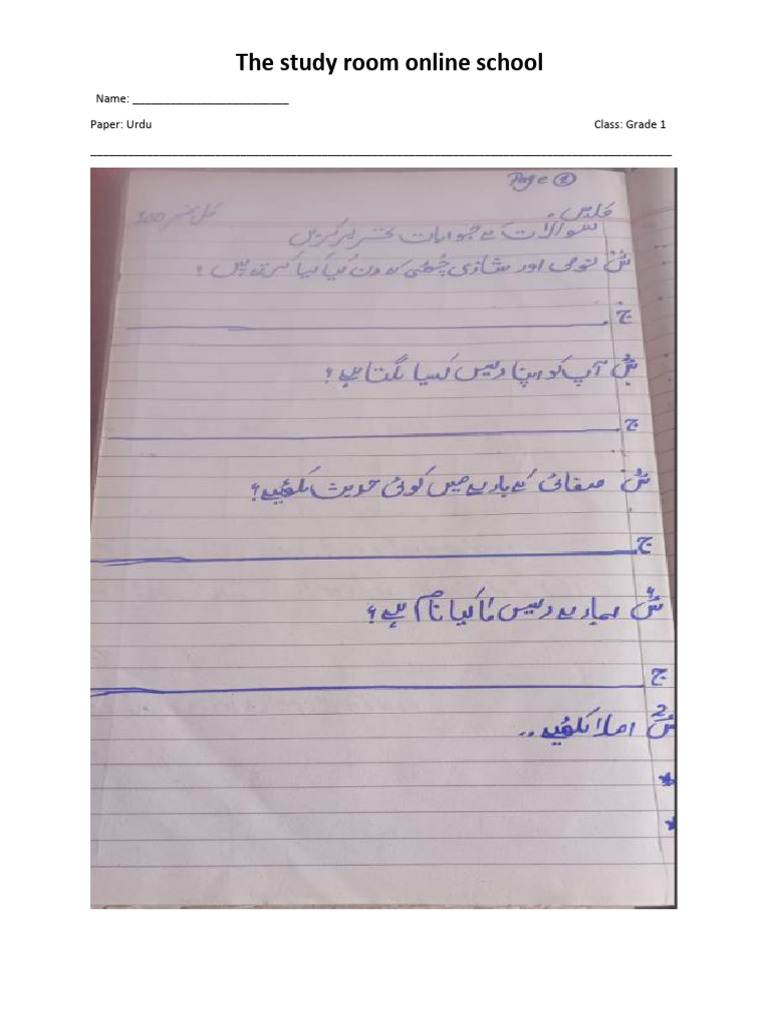 The study room online school
Name: __________________________
Paper: Urdu Class: Grade 1
Page ②
کل نمبر 100
سوالات کے جوابات تحریر کریں
س نومی اور شازی چھٹی کے دن کیا کیا کرتے ہیں؟
ج
س آپ کو اپنا دیس کیسا لگتا ہے؟
ج
س صفائی کے بارے میں کوئی حدیث لکھئیے؟
ج
س ہمارے دیس کا کیا نام ہے؟
ج
س2 املا لکھئیے..